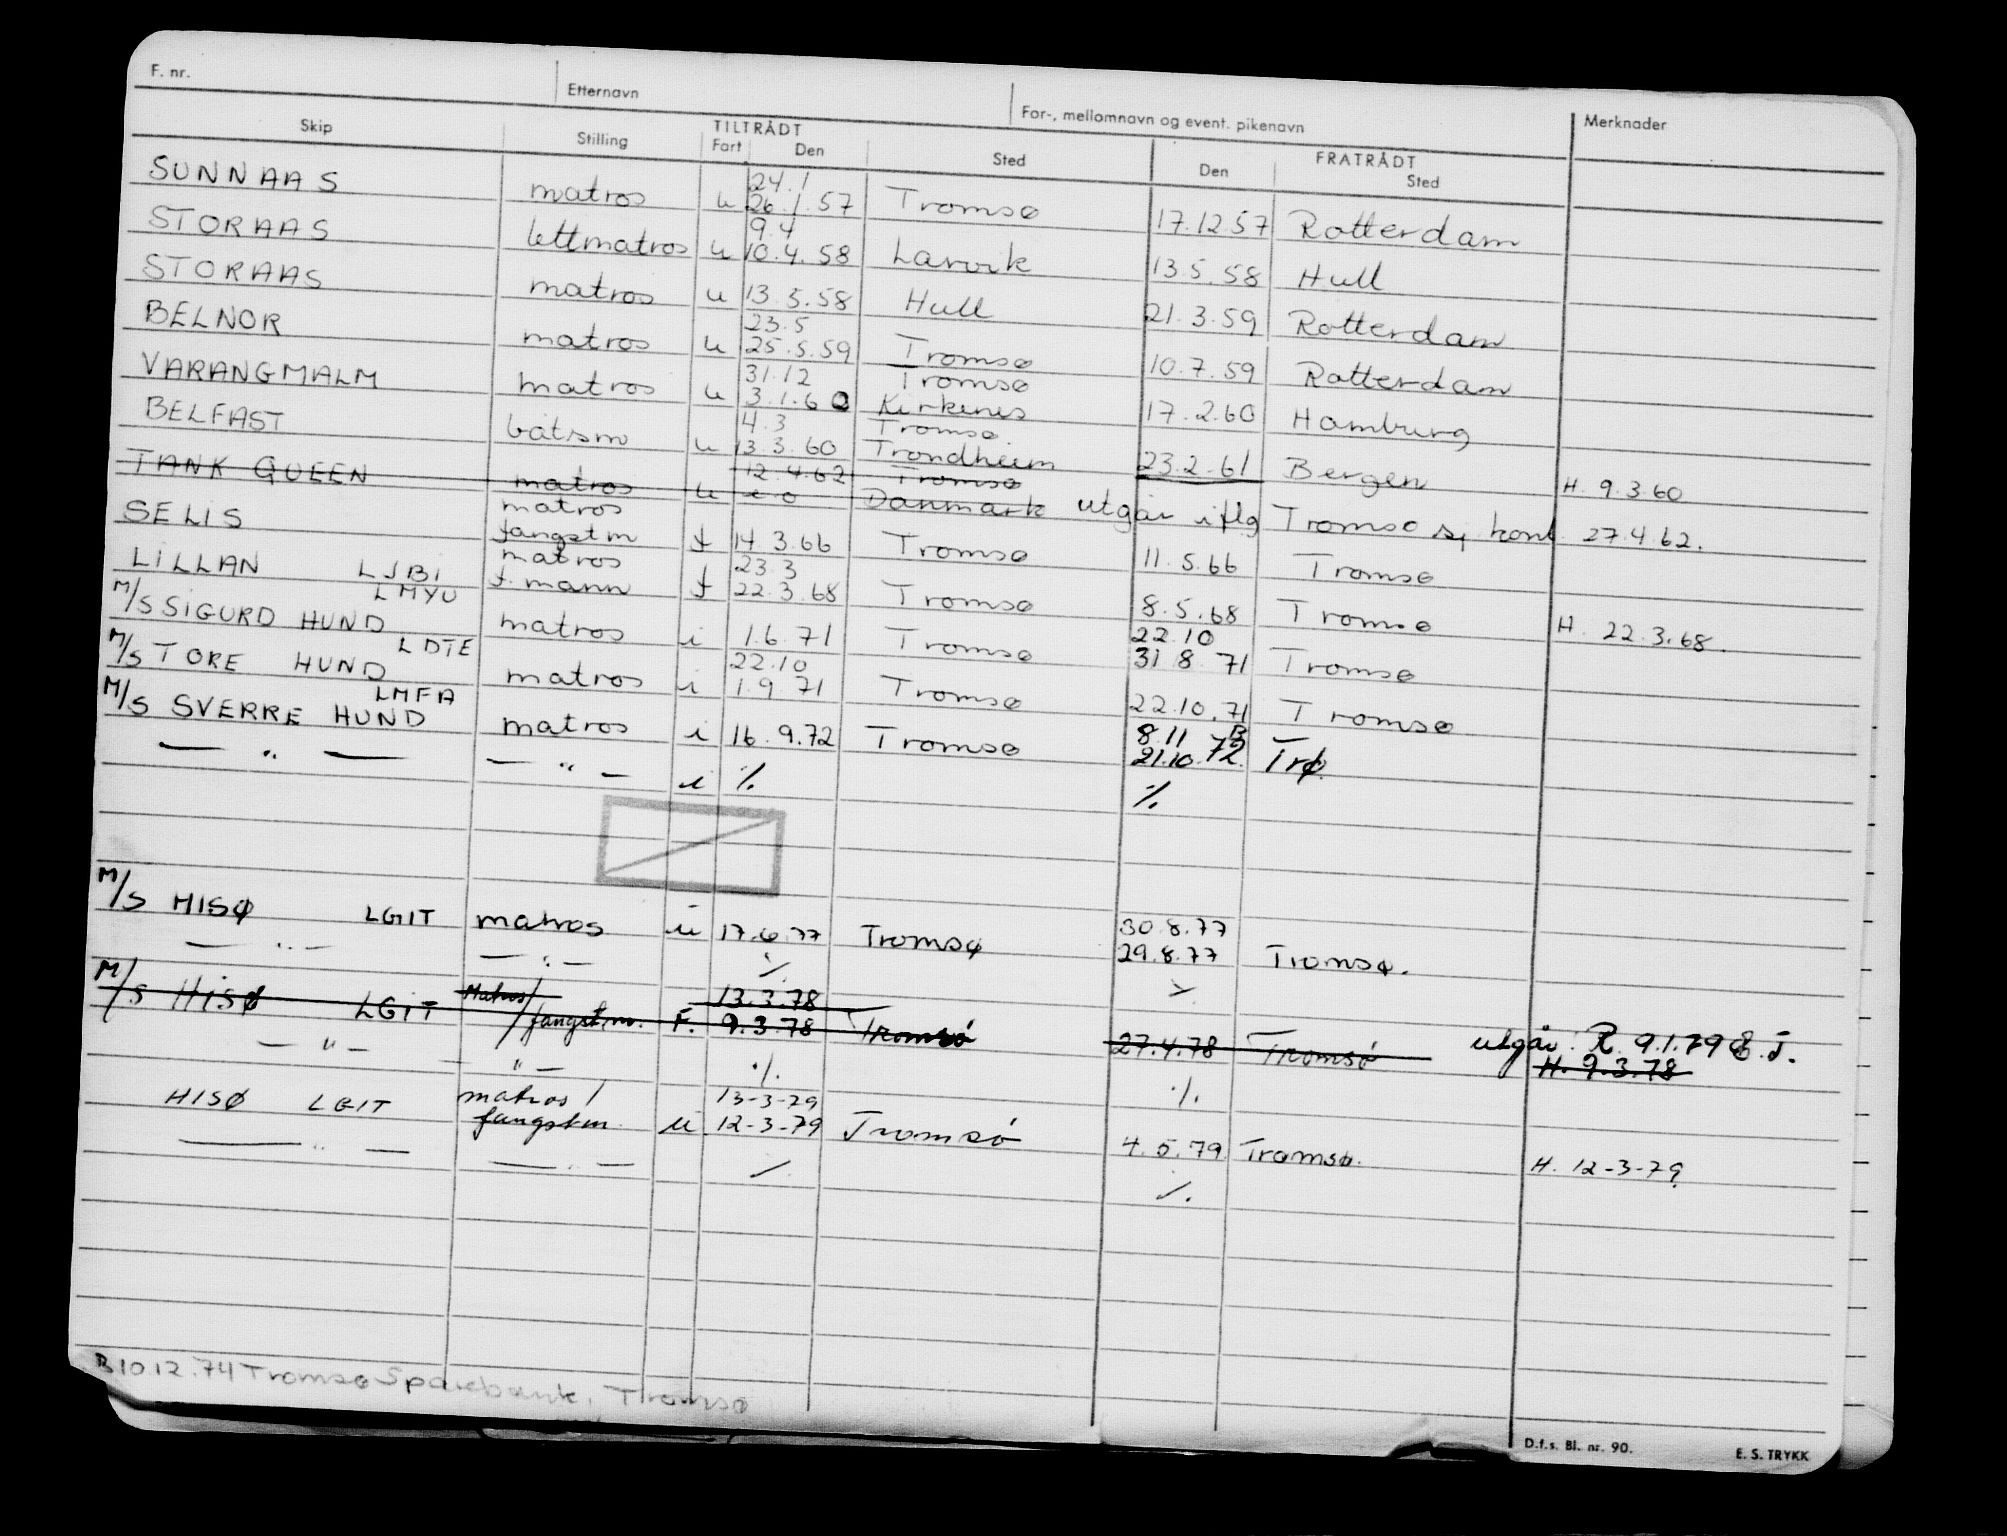 F. nr. Etternavn For-, mellomnavn og event. pikenavn Merknader
Skip Stilling TILTRÅDT Fart Den Sted FRATRÅDT Den Sted
24.1
SUNNAAS matros u 26.1.57 Tromsø 17.12.57 Rotterdam
9.4
STORAAS lettmatros u 10.4.58 Larvik 13.5.58 Hull
STORAAS matros u 13.5.58 Hull 21.3.59 Rotterdam
23.5
BELNOR matros u 25.5.59 Tromsø 10.7.59 Rotterdam
31.12 Tromsø
VARANGMALM matros u 3.1.60 Kirkenes 17.2.60 Hamburg
4.3 Tromsø.
BELFAST båtsm u 13.3.60 Trondheim 23.2.61 Bergen H. 9.3.60
12.4.62 Tromsø
TANK QUEEN matros u Danmark utgår iflg Tromsø sj kont. 27.4.62.
matros
SELIS fangstm f 14.3.66 Tromsø 11.5.66 Tromsø
matros 23.3
LILLAN LJBI f.mann f 22.3.68 Tromsø 8.5.68 Tromsø H. 22.3.68.
LMYU 22.10
M/S SIGURD HUND matros i 1.6.71 Tromsø 31.8.71 Tromsø
LDTE 22.10
M/S TORE HUND matros i 1.9.71 Tromsø 22.10.71 Tromsø
LMFA 8.11 B
M/S SVERRE HUND matros i 16.9.72 Tromsø 21.10.72. Trø.
— " — — " — i ⁒ ⁒
30.8.77
M/S HISØ LGIT matros u 17.6.77 Tromsø 29.8.77 Tromsø.
— " — — " — ⁒
Matros/ 13.3.78
M/S HISØ LGIT /fangstm. F. 9.3.78 Tromsø 27.4.78 Tromsø utgår: R. 9.1.79 E.J.
H. 9.3.78
— " — " — ⁒ ⁒
matros/ 13-3-79
HISØ LGIT fangstm. u 12-3-79 Tromsø 4.5.79 Tromsø. H. 12-3-79
— " — — " — ⁒ ⁒
B10.12.74 Tromsø Sparebank, Tromsø
D.f.s. Bl. nr. 90. E. S. TRYKK